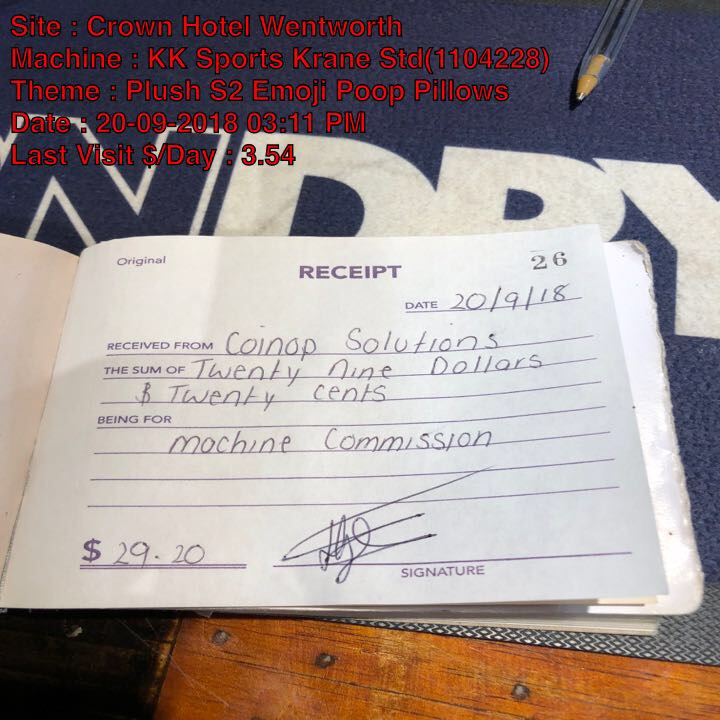 Site : Crown Hotel Wentworth
Machine : KK Sports Krane Std(1104228)
Theme : Plush S2 Emoji Poop Pillows
Date : 20-09-2018 03:11 PM
Last Visit $/Day : 3.54
NDRY
Original
RECEIPT
26
DATE 20/9/18
RECEIVED FROM Coinop Solutions
THE SUM OF Twenty Nine Dollars
$ Twenty cents
BEING FOR
machine Commission
$ 29.20
SIGNATURE